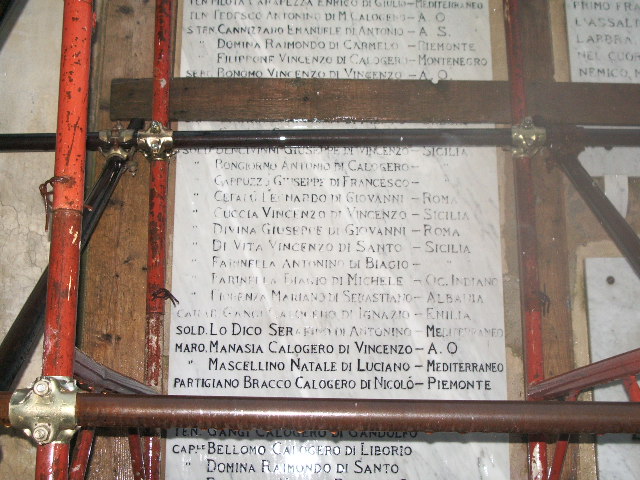 TEN PILOTA CARAPEZZA ENRICO DI GIULIO – MEDITERRANEO
TEN TEDESCO ANTONINO DI M. CALOGERO – A. O
S TEN CANNIZZARO EMANUELE DI ANTONIO – A S.
" DOMINA RAIMONDO DI CARMELO – PIEMONTE
" FILIPPONE VINCENZO DI CALOGERO – MONTENEGRO
SERG. BONOMO VINCENZO DI VINCENZO – A. O.
GIUSEPPE DI VINCENZO – SICILIA
" BONGIORNO ANTONIO DI CALOGERO –
" CAPPUZZO GIUSEPPE DI FRANCESCO –
" CEFALÙ LEONARDO DI GIOVANNI – ROMA
" CUCCIA VINCENZO DI VINCENZO – SICILIA
" DIVINA GIUSEPPE DI GIOVANNI – ROMA
" DI VITA VINCENZO DI SANTO – SICILIA
" FARINELLA ANTONINO DI BIAGIO – "
" FARINELLA BIAGIO DI MICHELE – OC. INDIANO
" FIORENZA MARIANO DI SEBASTIANO – ALBANIA
GANGI CALOGERO DI IGNAZIO – EMILIA
SOLD. LO DICO SERAFINO DI ANTONINO – MEDITERRANEO
MARO. MANASIA CALOGERO DI VINCENZO – A. O
" MASCELLINO NATALE DI LUCIANO – MEDITERRANEO
PARTIGIANO BRACCO CALOGERO DI NICOLÒ – PIEMONTE
TEN. GANGI CALOGERO DI GANDOLFO
CAPLE BELLOMO CALOGERO DI LIBORIO
" DOMINA RAIMONDO DI SANTO
PRIMO FRA
L'ASSAL
LABBRA
NEL CUOR
NEMICO,